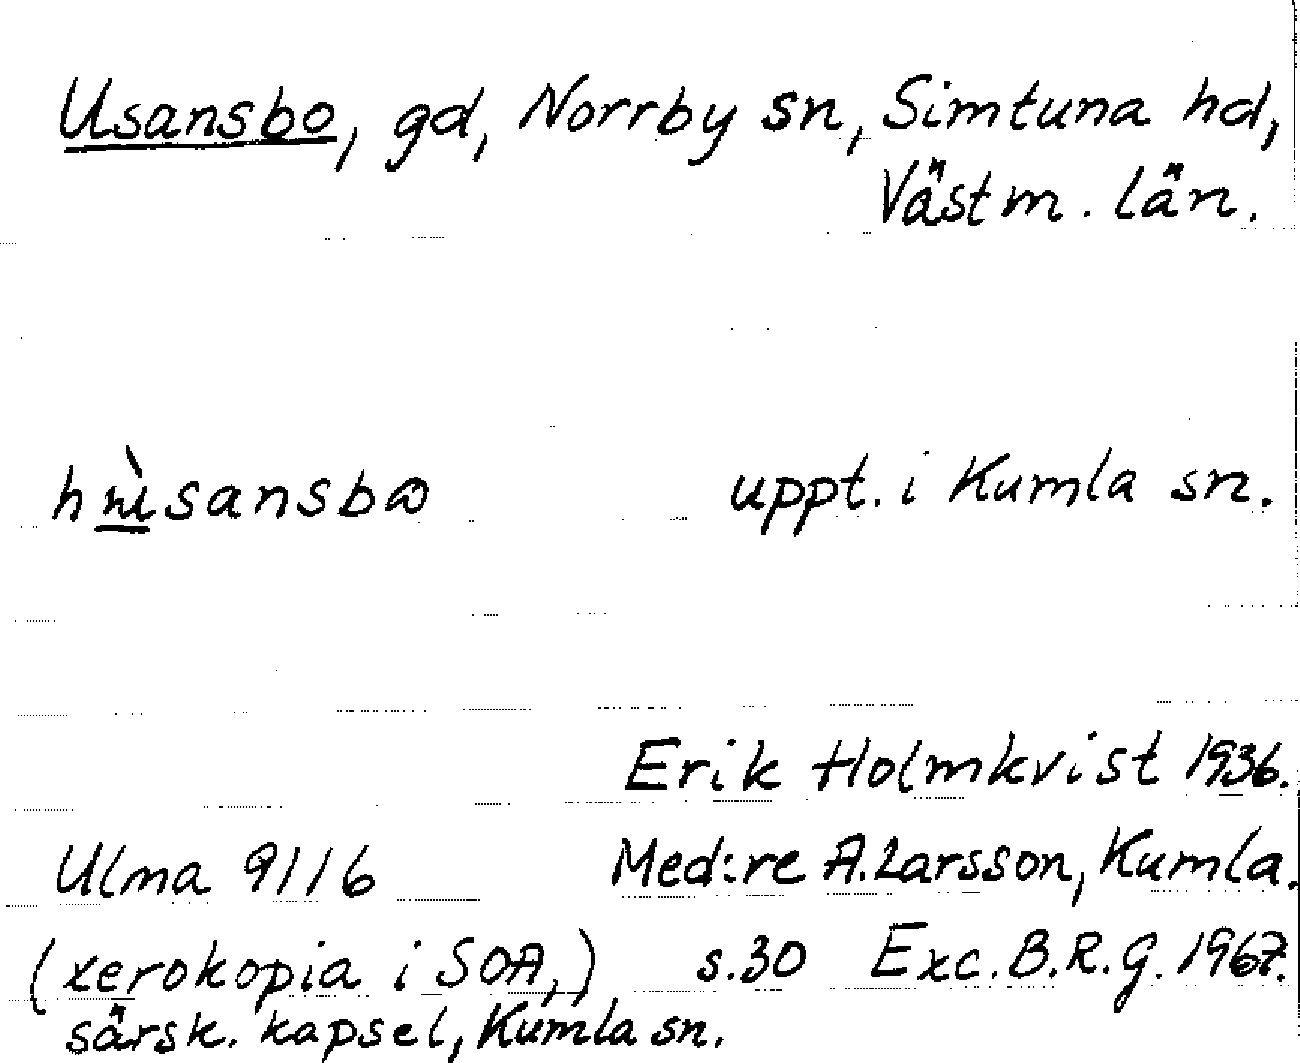 Usansbo, gd, Norrby sn, Simtuna hd,
Västm. län.
uppt. i Kumla sn.
Erik Holmkvist 1936.
Ulma 9116 Med:re A. Larsson, Kumla.
(xerokopia i SOA,) s.30 Exc. B.R.G. 1967.
särsk. kapsel, Kumla sn.